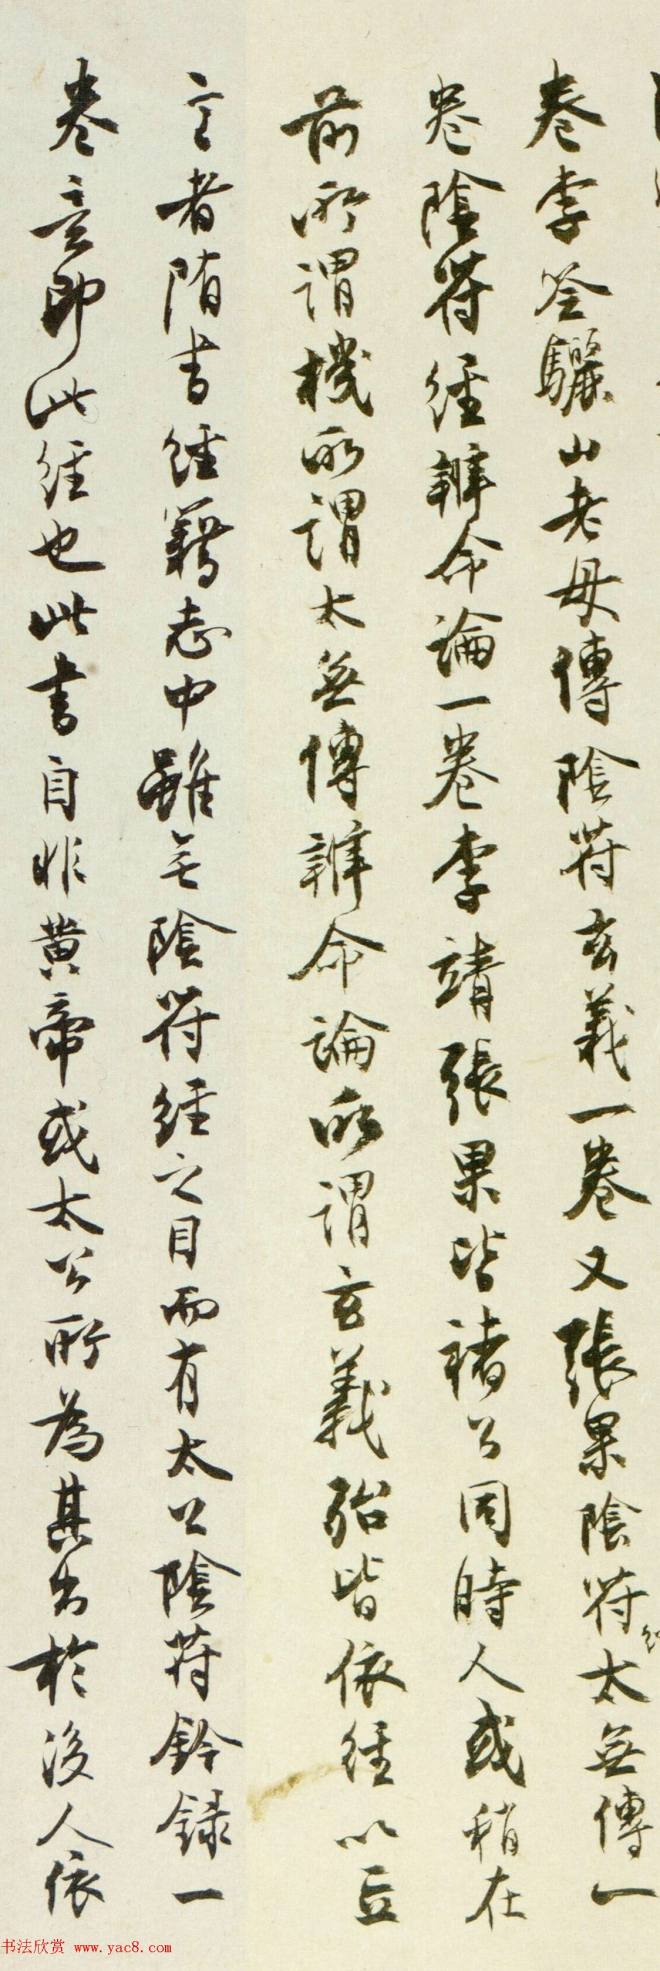 卷李筌驪山老母傳陰符玄義一卷又張果陰符經太無傳一
卷陰符經辨命論一卷李靖張果皆褚公同時人或稍在
前所謂機所謂太無傳辨命論所謂玄義殆皆依經以立
言者隋書經籍志中雖無陰符經之目而有太公陰符鈐錄一
卷意即此經也此書自非黃帝或太公所為其出於後人依
书法欣赏 www.yac8.com